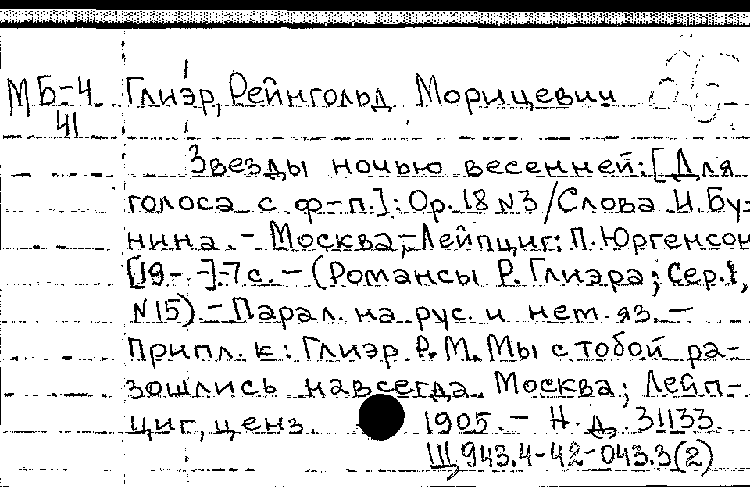 МБ-4 Глиэр, Рейнгольд Морицевич
41
Звезды ночью весенней: [Для
голоса с ф-п.]: Ор. 18 N3 / Слова И. Бу-
нина. - Москва; Лейпциг: П. Юргенсон
[19- -]. 7 с. - (Романсы Р. Глиэра; Сер. 1,
N15). - Парал. на рус. и нем. яз. -
Припл. к: Глиэр Р. М. Мы с тобой ра-
зошлись навсегда. Москва; Лейп-
циг, ценз. 1905. - Н. д. 31133.
Щ 943.4-42-043.3(2)